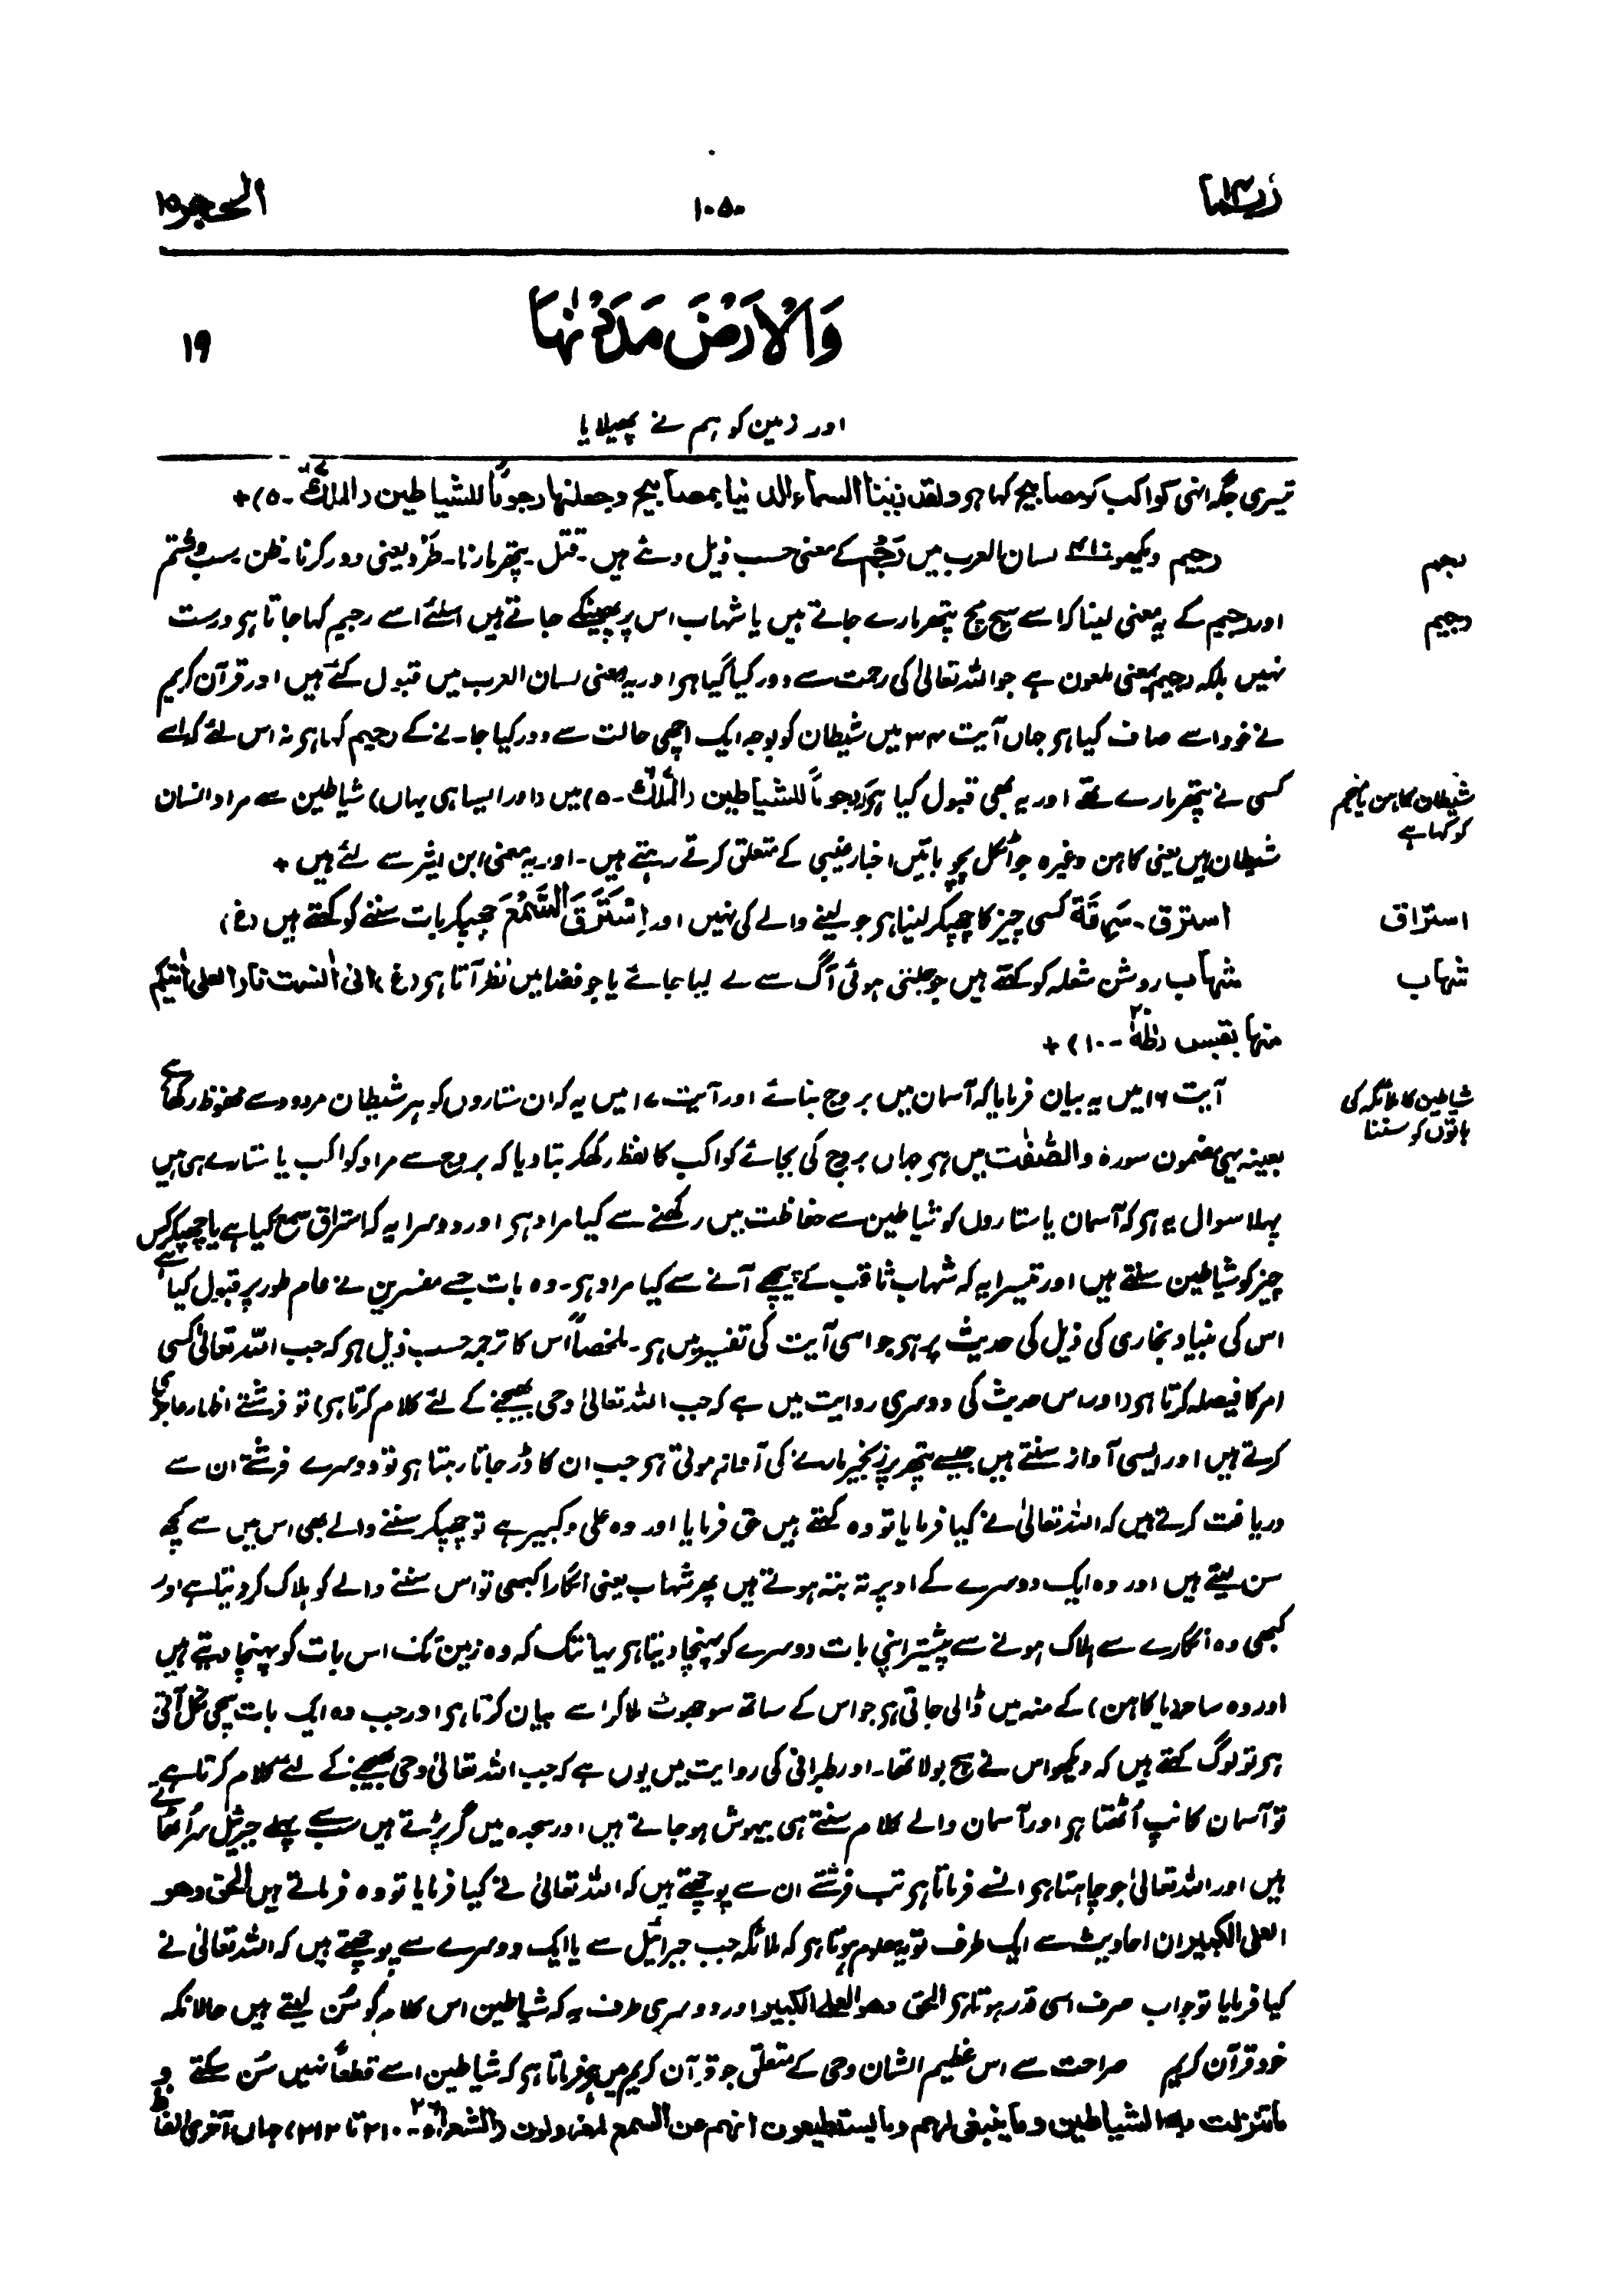 ربما ۱۴
۱۰۵۰
الحجر ۱۵
وَالْاَرْضَ مَدَدْنٰهَا
۱۹
اور زمین کو ہم نے پھیلایا
تیسری جگہ انہی کواکب کو مصابیح کہا ہو ولقد زینا السماء الدنیا بمصابیح وجعلنہا رجوماً للشیاطین (الملک ۶۷ - ۵) +
رجم
رجیم دیکھو لسان العرب میں رَجْم کے معنی حسب ذیل دئے ہیں۔ قتل۔ پتھر مارنا۔ طَرْد یعنی دور کرنا۔ ظن۔ سب وشتم
رجیم
اور رجیم کے یہ معنی لینا کہ اسے سچ مچ پتھر مارے جاتے ہیں یا شہاب اس پر پھینکے جاتے ہیں اسلئے اسے رجیم کہا جاتا ہو درست
نہیں بلکہ رجیم بمعنی ملعون ہے جو اللہ تعالیٰ کی رحمت سے دور کیا گیا ہو اور یہ معنی لسان العرب میں قبول کئے ہیں اور قرآن کریم
نے خود اسے صاف کیا ہو جہاں آیت ۳۴ میں شیطان کو بوجہ ایک اچھی حالت سے دور کیا جانے کے رجیم کہا ہو نہ اس لئے کہ اسے
شیطان کاہن یا منجم
کو کہا ہے
کسی نے پتھر مارے تھے اور یہ بھی قبول کیا ہو کہ رجوماً للشیاطین (الملک ۶۷ - ۵) میں (اور ایسا ہی یہاں) شیاطین سے مراد انسان
شیطان ہیں یعنی کاہن وغیرہ جو اٹکل پچو باتیں اخبار غیبی کے متعلق کرتے رہتے ہیں۔ اور یہ معنی ابن اثیر سے لئے ہیں +
استراق
استرق۔ سَرِقَة کسی چیز کا چھپکر لینا ہو جو لینے والے کی نہیں اور اِسْتَرَقَ السَّمْعَ چھپکر بات سننے کو کہتے ہیں (غ)
شہاب
شہاب روشن شعلہ کو کہتے ہیں جو جلتی ہوئی آگ سے لے لیا جائے یا جو فضا میں نظر آتا ہو (غ) انی اٰنست ناراً لعلی اٰتیکم
منہا بقبس (طٰہٰ ۲۰ - ۱۰) +
شیاطین کا ملائکہ کی
باتوں کو سننا
آیت ۱۶ میں یہ بیان فرمایا کہ آسمان میں بروج بنائے اور آیت ۱۷ میں یہ کہ ان ستاروں کو ہر شیطان مردود سے محفوظ رکھا ہے
بعینہ یہی مضمون سورۂ والصّٰفّٰت میں ہو جہاں بروج کی بجائے کواکب کا لفظ رکھکر بتا دیا کہ بروج سے مراد کواکب یا ستارے ہی ہیں
پہلا سوال یہ ہو کہ آسمان یا ستاروں کو شیاطین سے حفاظت میں رکھنے سے کیا مراد ہو اور دوسرا یہ کہ استراق سمع کیا ہے یا چھپکر کس
چیز کو شیاطین سنتے ہیں اور تیسرا یہ کہ شہاب ثاقب کے پیچھے آنے سے کیا مراد ہو۔ وہ بات جسے مفسرین نے عام طور پر قبول کیا ہے
اس کی بنیاد بخاری کی ذیل کی حدیث پر ہو جو اسی آیت کی تفسیر میں ہو۔ ملخصاً اس کا ترجمہ حسب ذیل ہو کہ جب اللہ تعالیٰ کسی
امر کا فیصلہ کرتا ہو (اور اس حدیث کی دوسری روایت میں ہے کہ جب اللہ تعالیٰ وحی بھیجنے کے لئے کلام کرتا ہو) تو فرشتے اظہار عاجزی
کرتے ہیں اور ایسی آواز سنتے ہیں جیسے پتھر پر زنجیر مارنے کی آواز ہوتی ہو جب ان کا ڈر جاتا رہتا ہو تو دوسرے فرشتے ان سے
دریافت کرتے ہیں کہ اللہ تعالیٰ نے کیا فرمایا تو وہ کہتے ہیں حق فرمایا اور وہ علی وکبیر ہے تو چھپکر سننے والے بھی اس میں سے کچھ
سن لیتے ہیں اور وہ ایک دوسرے کے اوپر تہ بتہ ہوتے ہیں پھر شہاب یعنی انگارا کبھی تو اس سننے والے کو ہلاک کر دیتا ہے اور
کبھی وہ انگارے سے ہلاک ہونے سے پیشتر اپنی بات دوسرے کو پہنچا دیتا ہو یہانتک کہ وہ زمین تک اس بات کو پہنچا دیتے ہیں
اور وہ ساحر (یا کاہن) کے منہ میں ڈالی جاتی ہو جو اس کے ساتھ سو جھوٹ ملا کر اسے بیان کرتا ہو اور جب وہ ایک بات سچی نکل آتی
ہو تو لوگ کہتے ہیں کہ دیکھو اس نے سچ بولا تھا۔ اور طبرانی کی روایت میں یوں ہے کہ جب اللہ تعالیٰ وحی بھیجنے کے لئے کلام کرتا ہے
تو آسمان کانپ اُٹھتا ہو اور آسمان والے کلام سنتے ہی بیہوش ہو جاتے ہیں اور سجدہ میں گر پڑتے ہیں سب سے پہلے جبرئیل سر اُٹھاتے
ہیں اور اللہ تعالیٰ جو چاہتا ہو انسے فرماتا ہو تب فرشتے ان سے پوچھتے ہیں کہ اللہ تعالیٰ نے کیا فرمایا تو وہ فرماتے ہیں الحق وھو
العلی الکبیر ان احادیث سے ایک طرف تو یہ معلوم ہوتا ہو کہ ملائکہ جب جبرائیل سے یا ایک دوسرے سے پوچھتے ہیں کہ اللہ تعالیٰ نے
کیا فرمایا تو جواب صرف اسی قدر ہوتا ہو الحق وھو العلی الکبیر اور دوسری طرف یہ کہ شیاطین اس کلام کو سُن لیتے ہیں حالانکہ
خود قرآن کریم صراحت سے اس عظیم الشان وحی کے متعلق جو قرآن کریم میں ہو فرماتا ہو کہ شیاطین اسے قطعاً نہیں سُن سکتے و
ما تنزلت بہ الشیاطین وما ینبغی لہم وما یستطیعون انہم عن السمع لمعزولون (الشعراء ۲۶ - ۲۱۰ تا ۲۱۲) جہاں آخری الفاظ